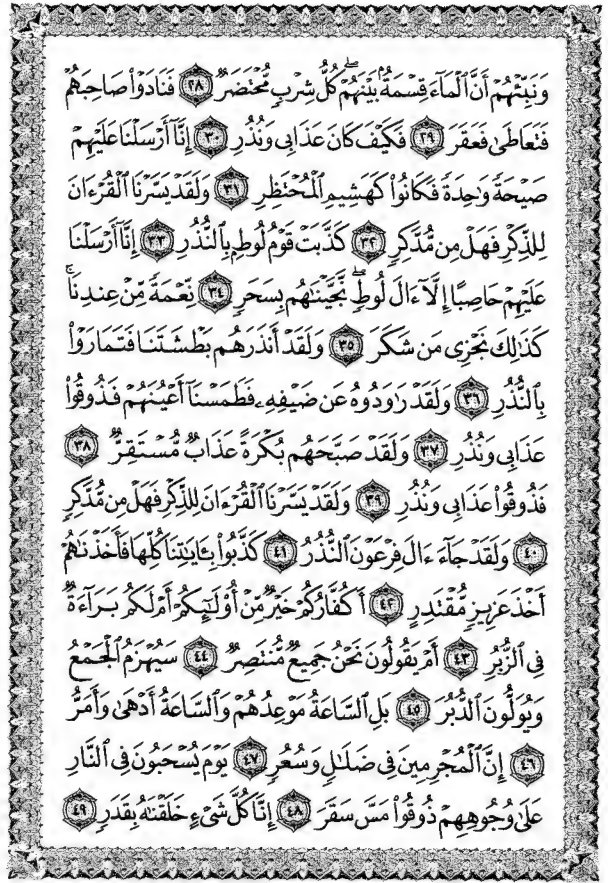 وَنَبِّئْهُمْ أَنَّ ٱلْمَآءَ قِسْمَةٌۢ بَيْنَهُمْۖ كُلُّ شِرْبٍ مُّحْتَضَرٌ ٢٨ فَنَادَوْا۟ صَاحِبَهُمْ
فَتَعَاطَىٰ فَعَقَرَ ٢٩ فَكَيْفَ كَانَ عَذَابِى وَنُذُرِ ٣٠ إِنَّآ أَرْسَلْنَا عَلَيْهِمْ
صَيْحَةً وَٰحِدَةً فَكَانُوا۟ كَهَشِيمِ ٱلْمُحْتَظِرِ ٣١ وَلَقَدْ يَسَّرْنَا ٱلْقُرْءَانَ
لِلذِّكْرِ فَهَلْ مِن مُّدَّكِرٍ ٣٢ كَذَّبَتْ قَوْمُ لُوطٍۭ بِٱلنُّذُرِ ٣٣ إِنَّآ أَرْسَلْنَا
عَلَيْهِمْ حَاصِبًا إِلَّآ ءَالَ لُوطٍۖ نَّجَّيْنَٰهُم بِسَحَرٍ ٣٤ نِّعْمَةً مِّنْ عِندِنَاۚ
كَذَٰلِكَ نَجْزِى مَن شَكَرَ ٣٥ وَلَقَدْ أَنذَرَهُم بَطْشَتَنَا فَتَمَارَوْا۟
بِٱلنُّذُرِ ٣٦ وَلَقَدْ رَٰوَدُوهُ عَن ضَيْفِهِۦ فَطَمَسْنَآ أَعْيُنَهُمْ فَذُوقُوا۟
عَذَابِى وَنُذُرِ ٣٧ وَلَقَدْ صَبَّحَهُم بُكْرَةً عَذَابٌ مُّسْتَقِرٌّ ٣٨
فَذُوقُوا۟ عَذَابِى وَنُذُرِ ٣٩ وَلَقَدْ يَسَّرْنَا ٱلْقُرْءَانَ لِلذِّكْرِ فَهَلْ مِن مُّدَّكِرٍ
٤٠ وَلَقَدْ جَآءَ ءَالَ فِرْعَوْنَ ٱلنُّذُرُ ٤١ كَذَّبُوا۟ بِـَٔايَٰتِنَا كُلِّهَا فَأَخَذْنَٰهُمْ
أَخْذَ عَزِيزٍ مُّقْتَدِرٍ ٤٢ أَكُفَّارُكُمْ خَيْرٌ مِّنْ أُو۟لَٰٓئِكُمْ أَمْ لَكُم بَرَآءَةٌ
فِى ٱلزُّبُرِ ٤٣ أَمْ يَقُولُونَ نَحْنُ جَمِيعٌ مُّنتَصِرٌ ٤٤ سَيُهْزَمُ ٱلْجَمْعُ
وَيُوَلُّونَ ٱلدُّبُرَ ٤٥ بَلِ ٱلسَّاعَةُ مَوْعِدُهُمْ وَٱلسَّاعَةُ أَدْهَىٰ وَأَمَرُّ
٤٦ إِنَّ ٱلْمُجْرِمِينَ فِى ضَلَٰلٍ وَسُعُرٍ ٤٧ يَوْمَ يُسْحَبُونَ فِى ٱلنَّارِ
عَلَىٰ وُجُوهِهِمْ ذُوقُوا۟ مَسَّ سَقَرَ ٤٨ إِنَّا كُلَّ شَىْءٍ خَلَقْنَٰهُ بِقَدَرٍ ٤٩